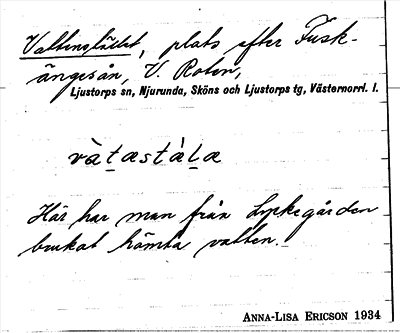 Vattenstället, plats efter Fusk-
ängesån, V. Roten,
Ljustorps sn, Njurunda, Sköns och Ljustorps tg, Västernorrl. l.
vàtæstàlæ
Här har man från Lyckegården
brukat hämta vatten.
ANNA-LISA ERICSON 1934